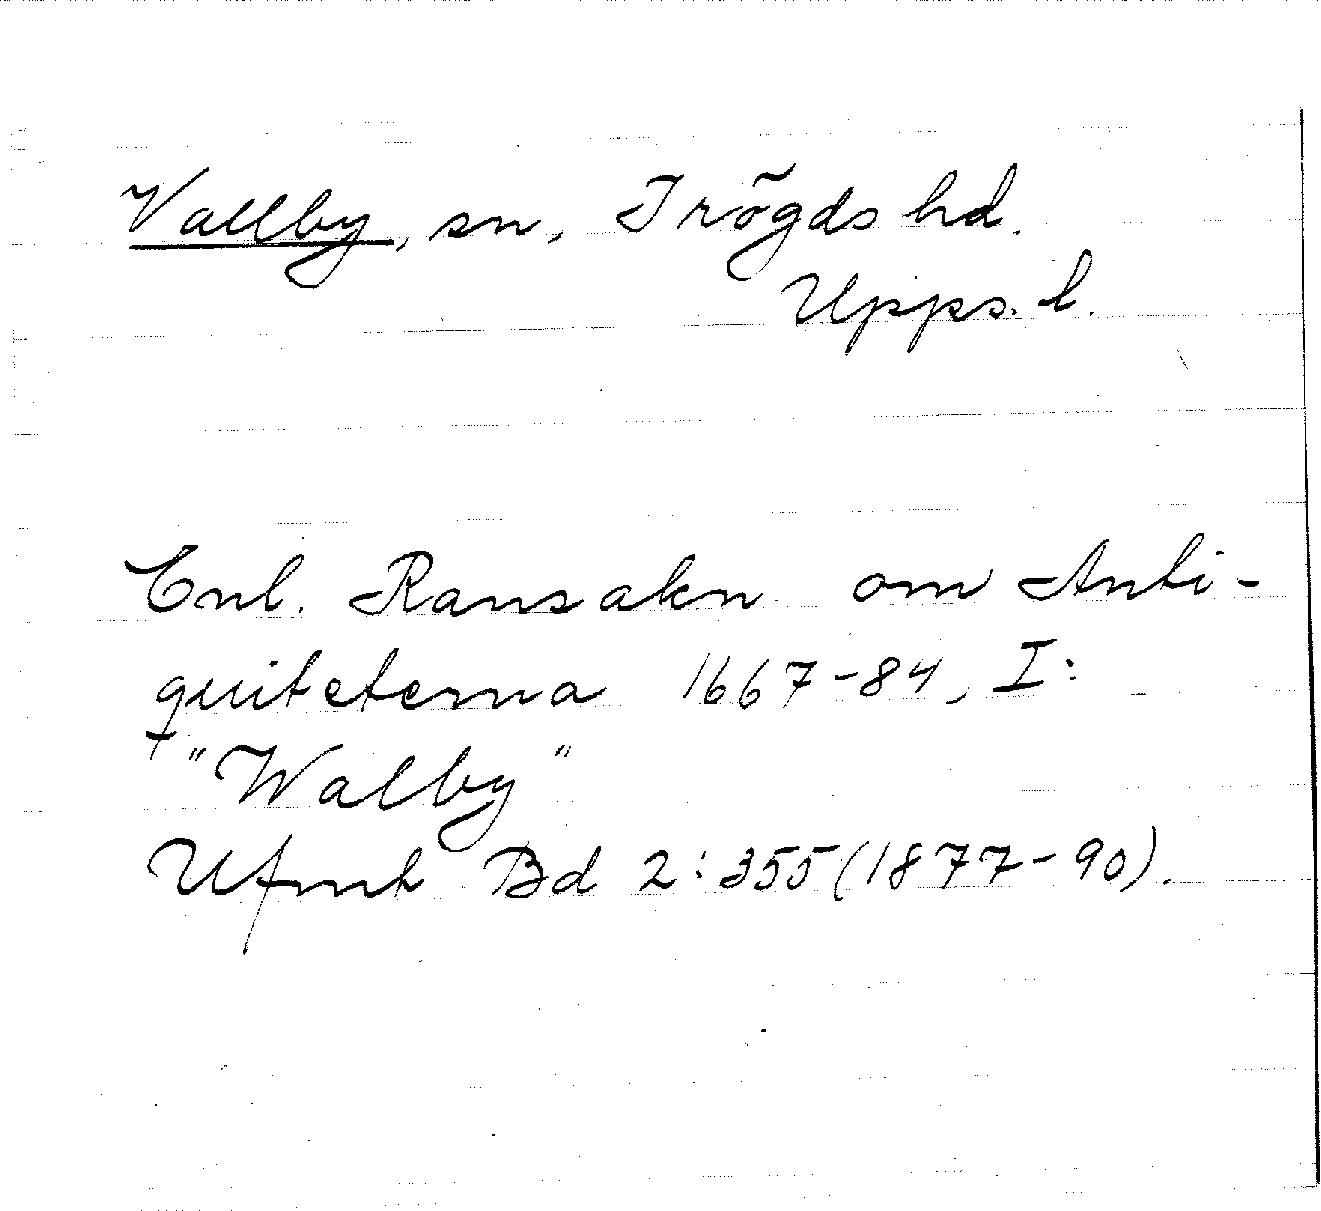 Vallby, sn, Trögds hd.
Upps. l.
Enl. Ransakn om Anti-
quiteterna 1667-84, I:
"Walby"
Ufmt Bd 2:355 (1877-90).